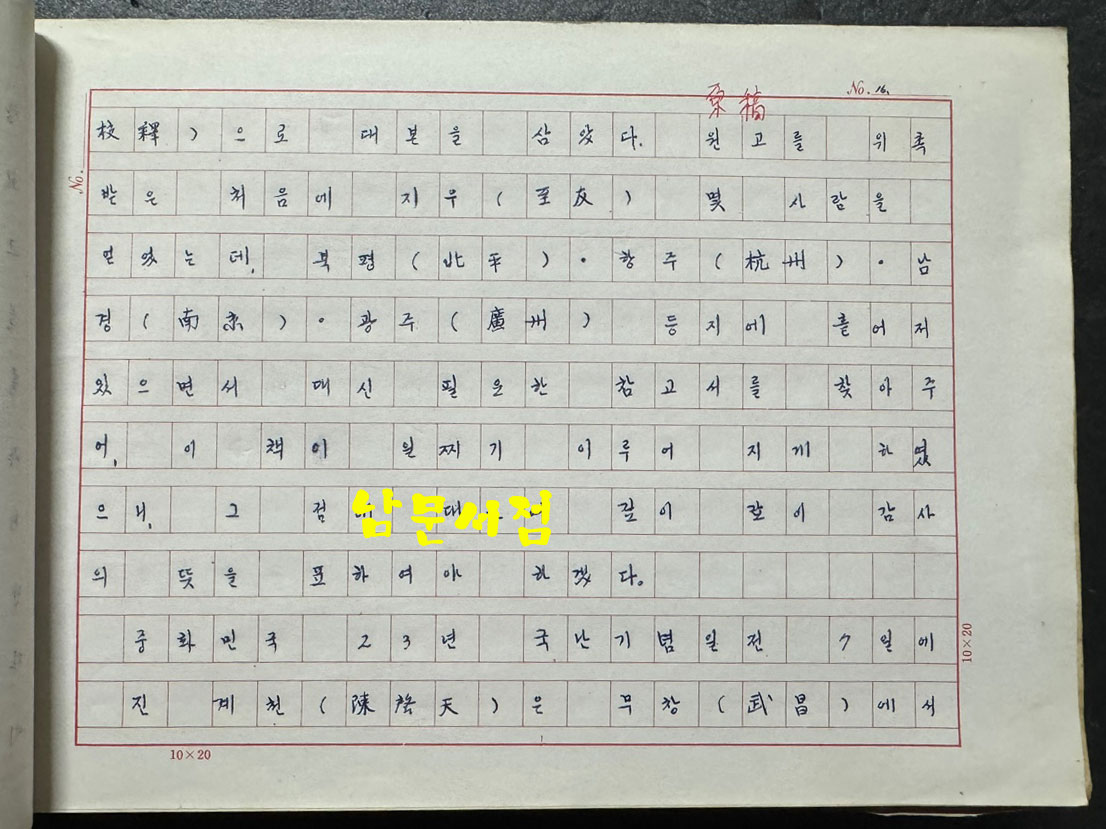 原稿
No. 16.
校釋)으로 대본을 삼았다. 원고를 위촉
No.
받은 처음에 지우(至友) 몇 사람을
얻었는데, 북평(北平)·항주(杭州)·남
경(南京)·광주(廣州) 등지에 흩어저
있으면서 대신 필요한 참고서를 찾아주
어, 이 책이 일찌기 이루어 지게 하였
으니, 그 점 깊이 깊이 감사
남문서점
의 뜻을 표하여야 하겠다.
중화민국 23년 국난기념일전 7일에
진 계천(陳 天)은 무창(武昌)에서
10×20
10×20